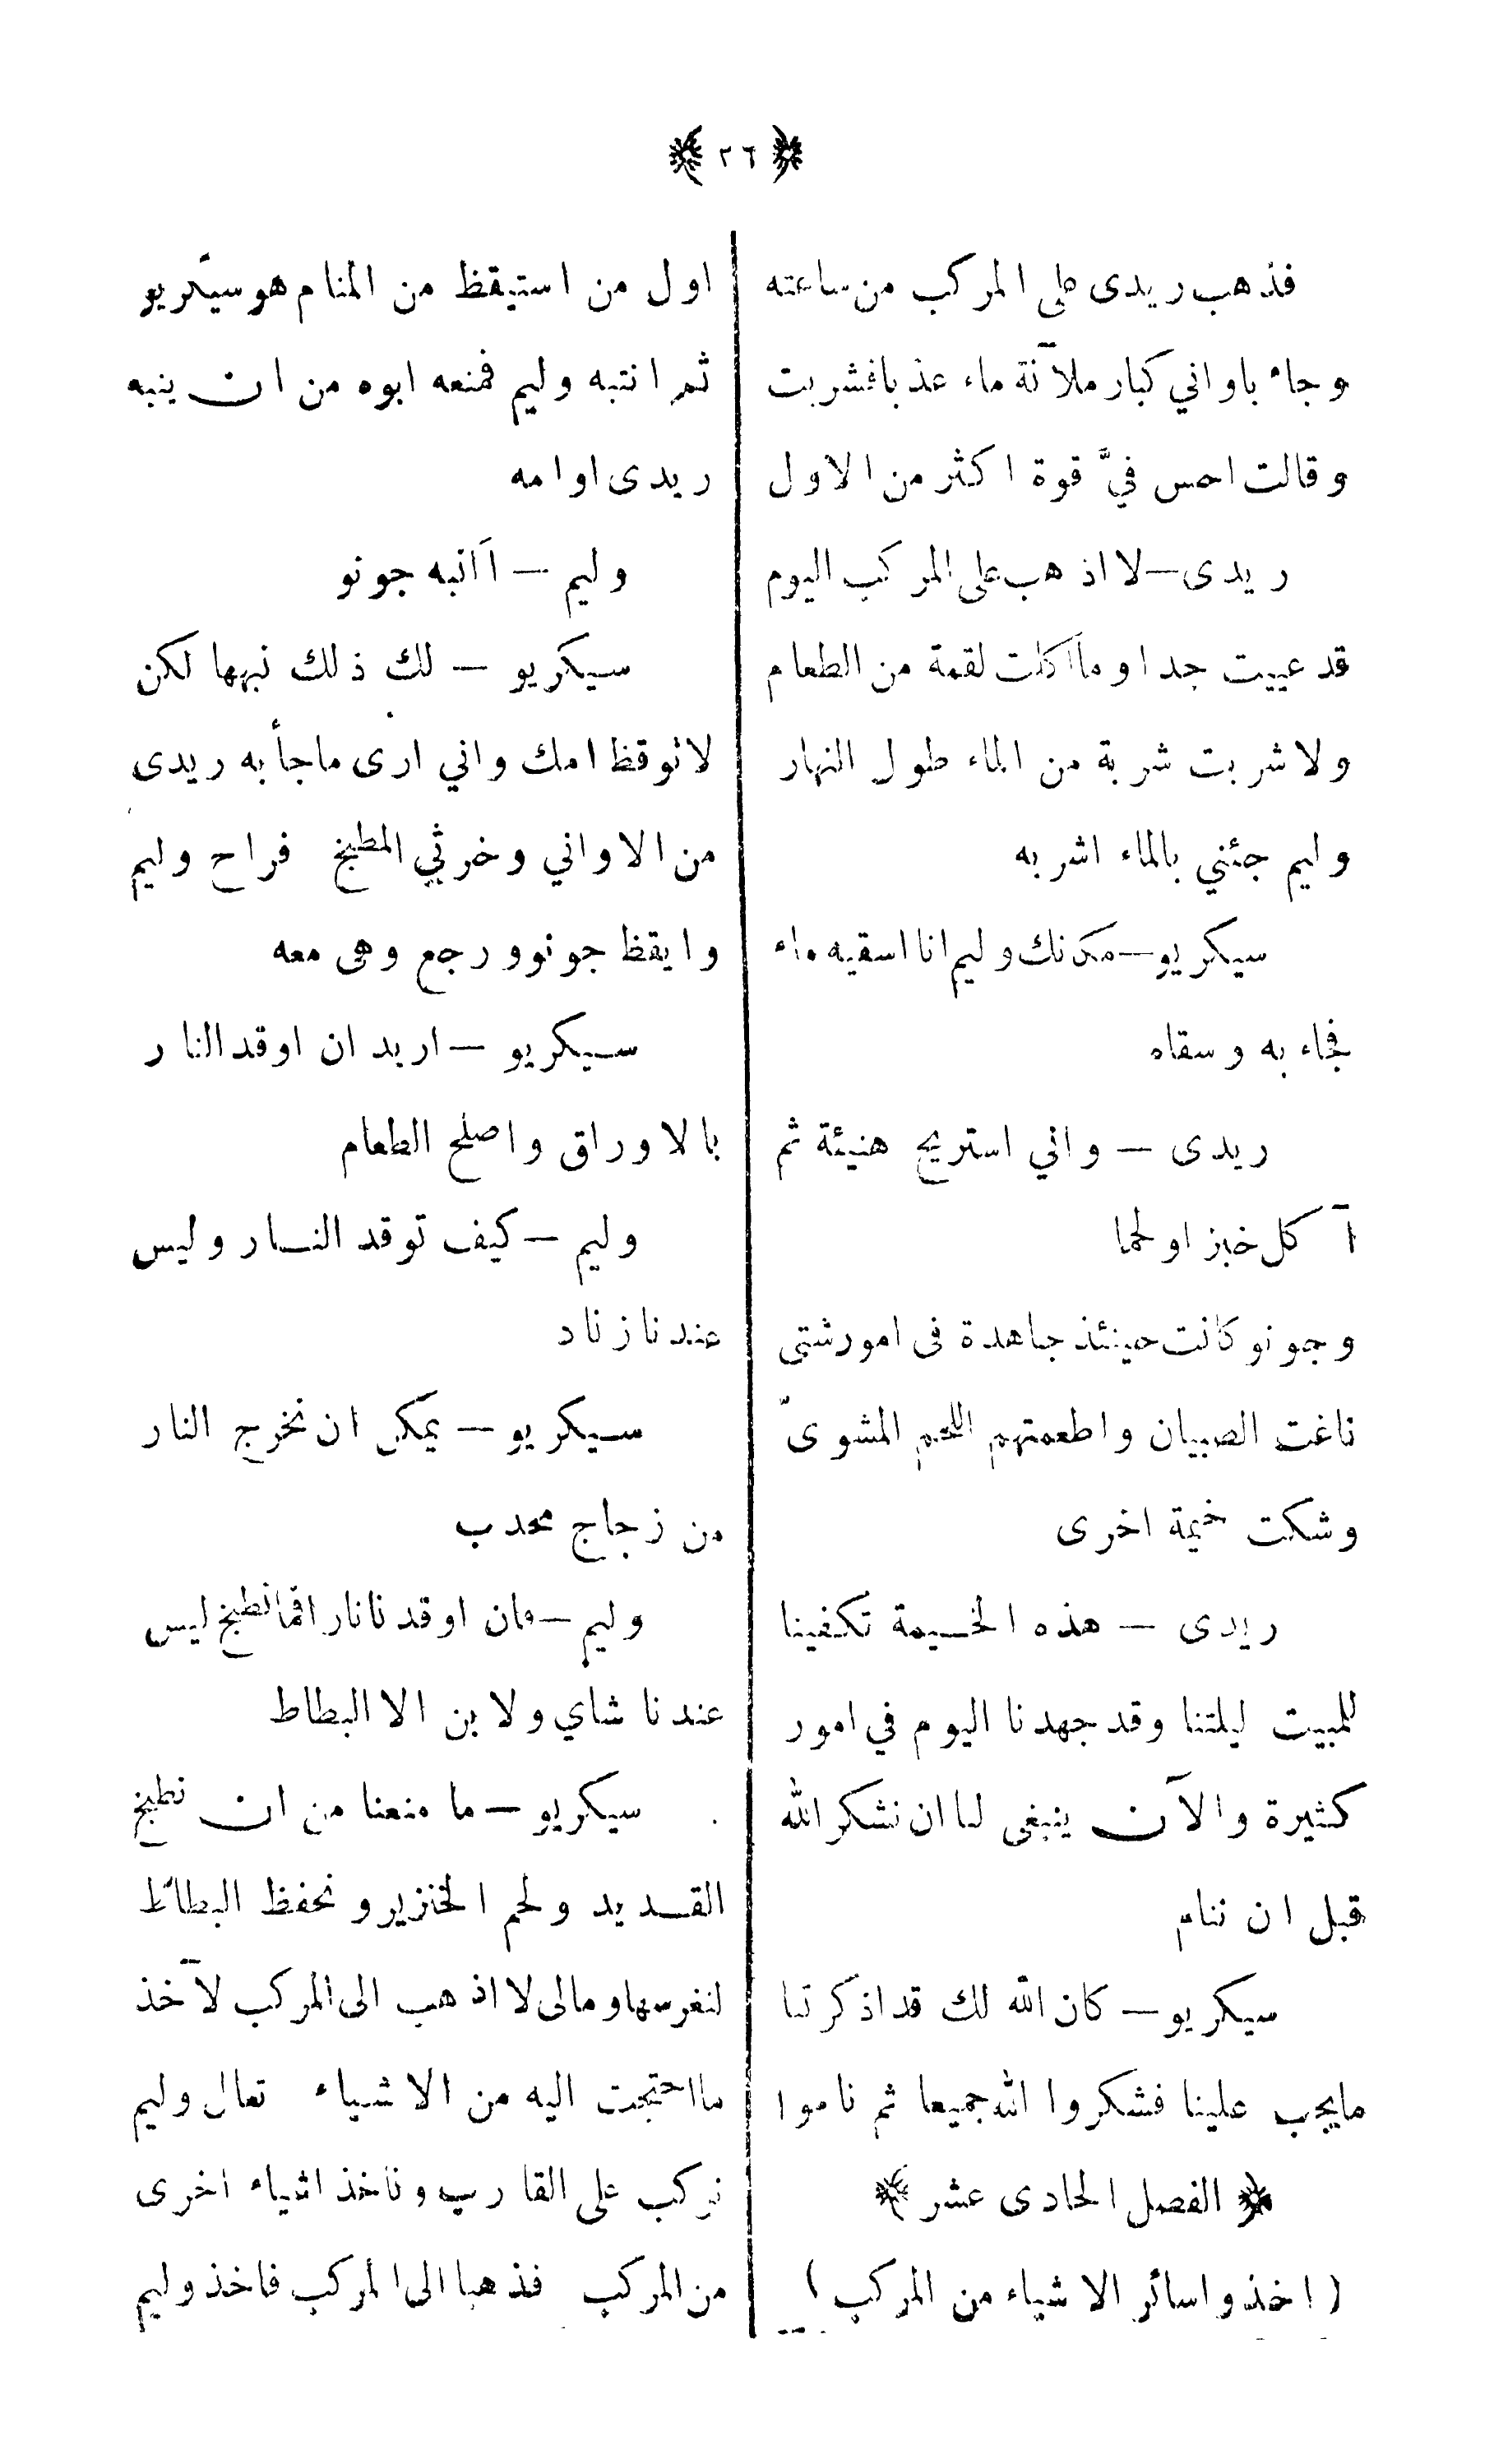 ٢٦
فذهب ريدى على المركب من ساعته
وجاء باواني كبار ملآنة ماء عذبا فشربت
وقالت احس فيَّ قوة اكثر من الاول
ريدى — لا اذهب على المركب اليوم
قد عييت جدا وما اكلت لقمة من الطعام
ولا شربت شربة من الماء طول النهار
وليم جئني بالماء اشربه
سيكريو — مكانك وليم انا اسقيه ماء
فجاء به وسقاه
ريدى — واني استريح هنيئة ثم
آكل خبز اولحما
وجونو كانت حينئذ جاهدة فى امور شتى
ناغت الصبيان واطعمتهم اللحم المشوىّ
وشكت خيمة اخرى
ريدى — هذه الخيمة تكفينا
للمبيت ليلتنا وقد جهدنا اليوم في امور
كثيرة والآن ينبغى لنا ان نشكر الله
قبل ان ننام
سيكريو — كان الله لك قد اذكرتنا
مايجب علينا فشكروا الله جميعا ثم ناموا
الفصل الحادى عشر
(اخذوا سائر الاشياء من المركب)
اول من استيقظ من المنام هو سيكريو
ثم انتبه وليم فمنعه ابوه من ان ينبه
ريدى او امه
وليم — أانبه جونو
سيكريو — لك ذلك نبهها لكن
لاتوقظ امك واني ارى ماجأ به ريدى
من الاواني وخرثي المطبخ فراح وليم
وايقظ جونو ورجع وهى معه
سيكريو — اريد ان اوقد النار
بالاوراق واصلح الطعام
وليم — كيف توقد النار وليس
عندنا زناد
سيكريو — يمكن ان نخرج النار
من زجاج محدب
وليم — فان اوقدنا نارا فما نطبخ ليس
عندنا شاي ولا بن الا البطاط
سيكريو — ما منعنا من ان نطبخ
القديد ولحم الخنزير ونحفظ البطاط
لنغرسها ومالى لا اذهب الى المركب لآخذ
ما احتجت اليه من الاشياء تعال وليم
نركب على القارب وناخذ اشياء اخرى
من المركب فذهبا الى المركب فاخذ وليم